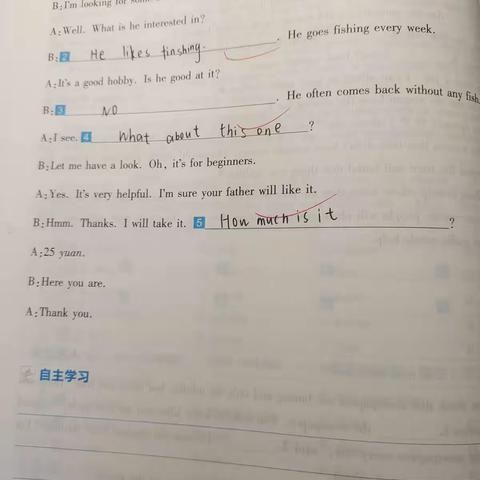 B: I'm looking for some
A: Well. What is he interested in?
B: 2 He likes finshing. . He goes fishing every week.
A: It's a good hobby. Is he good at it?
B: 3 NO . He often comes back without any fish.
A: I see. 4 What about this one ?
B: Let me have a look. Oh, it's for beginners.
A: Yes. It's very helpful. I'm sure your father will like it.
B: Hmm. Thanks. I will take it. 5 How much is it ?
A: 25 yuan.
B: Here you are.
A: Thank you.
自主学习